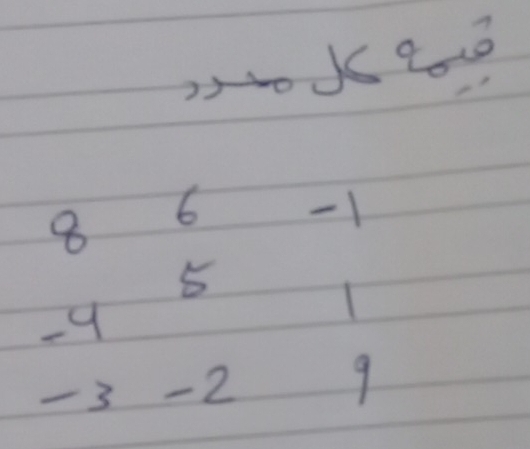 قيمة كل محدد
8 6 -1
-4 5 1
-3 -2 9